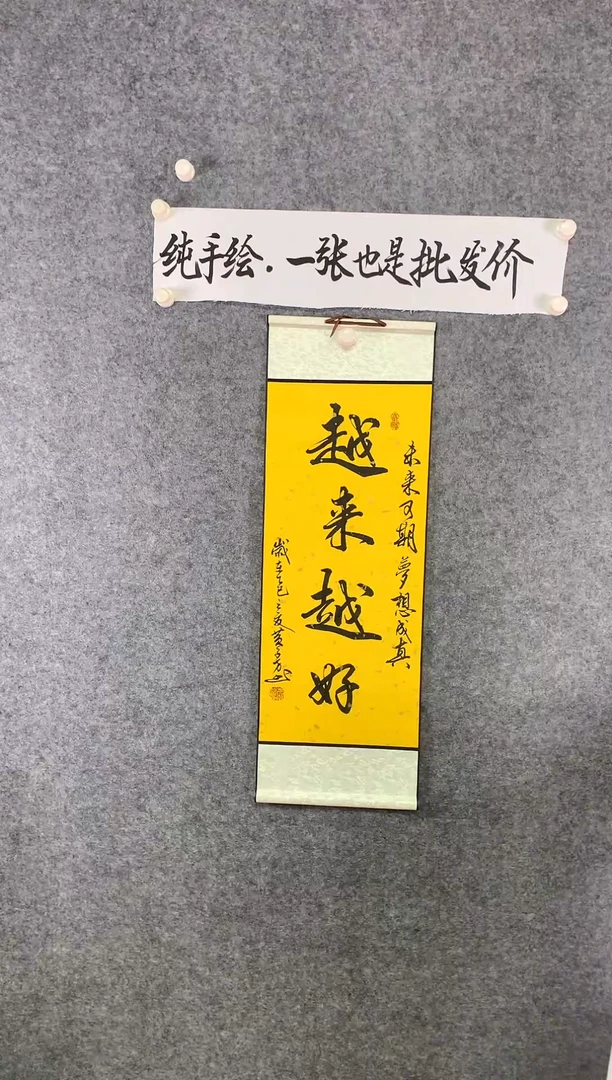 纯手绘.一张也是批发价
未来可期夢想成真
越来越好
歲在乙巳之夏